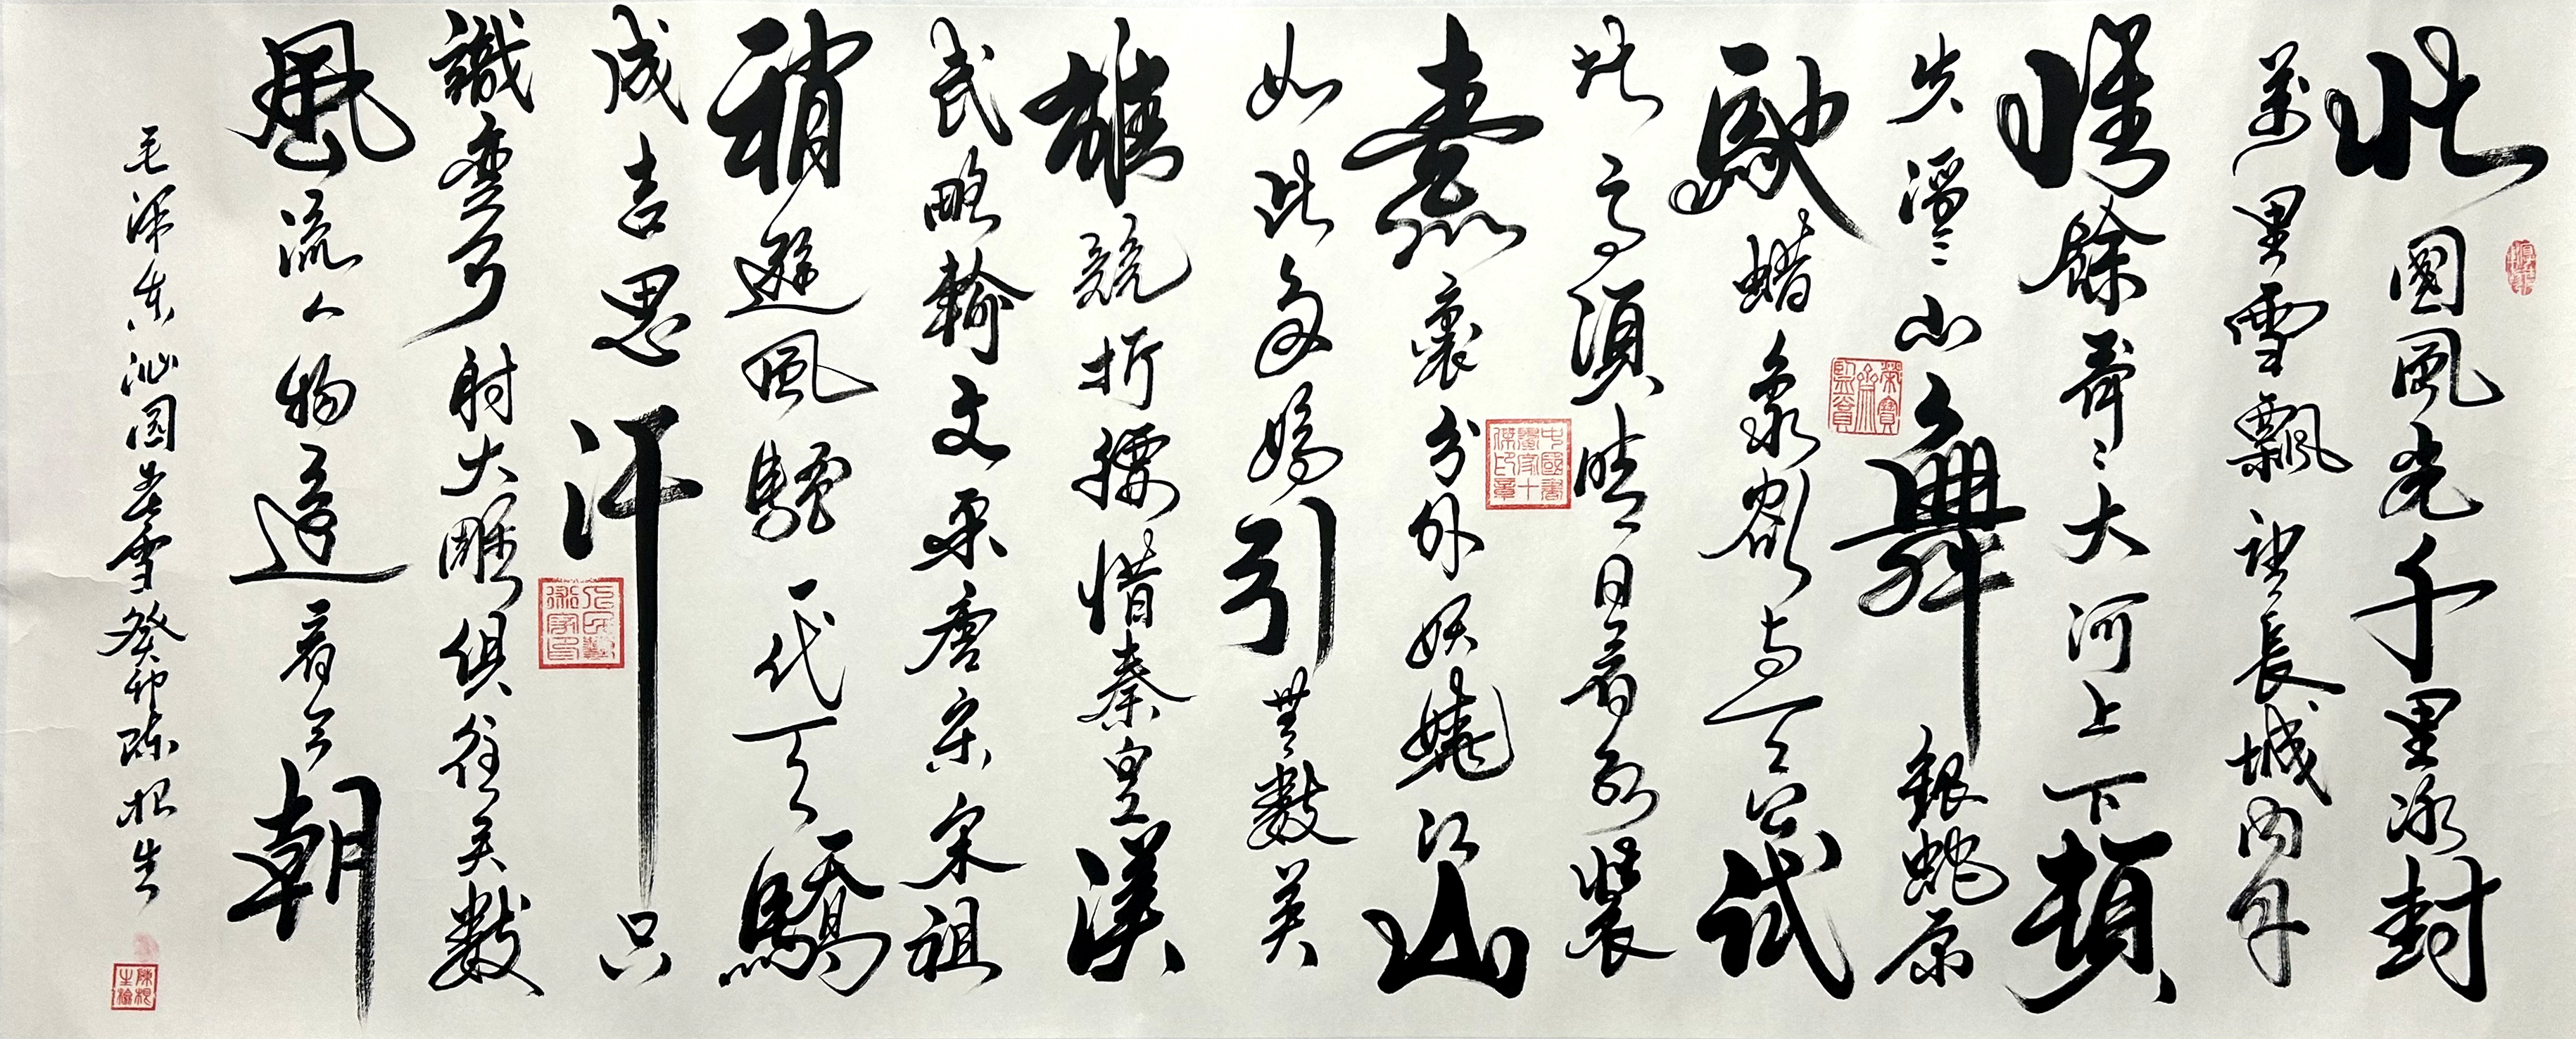 北國風光千里冰封
萬里雪飄望長城內外
惟餘莽々大河上下頓
失滔々山舞銀蛇原
馳蜡象欲与天公試
比高須晴日看紅裝
素裹分外妖嬈江山
如此多嬌引無數英
雄競折腰惜秦皇漢
武略輸文采唐宗宋祖
稍遜風騷一代天驕
成吉思汗只
識彎弓射大雕俱往矣數
風流人物還看今朝
毛澤東沁園春雪癸卯陈根生